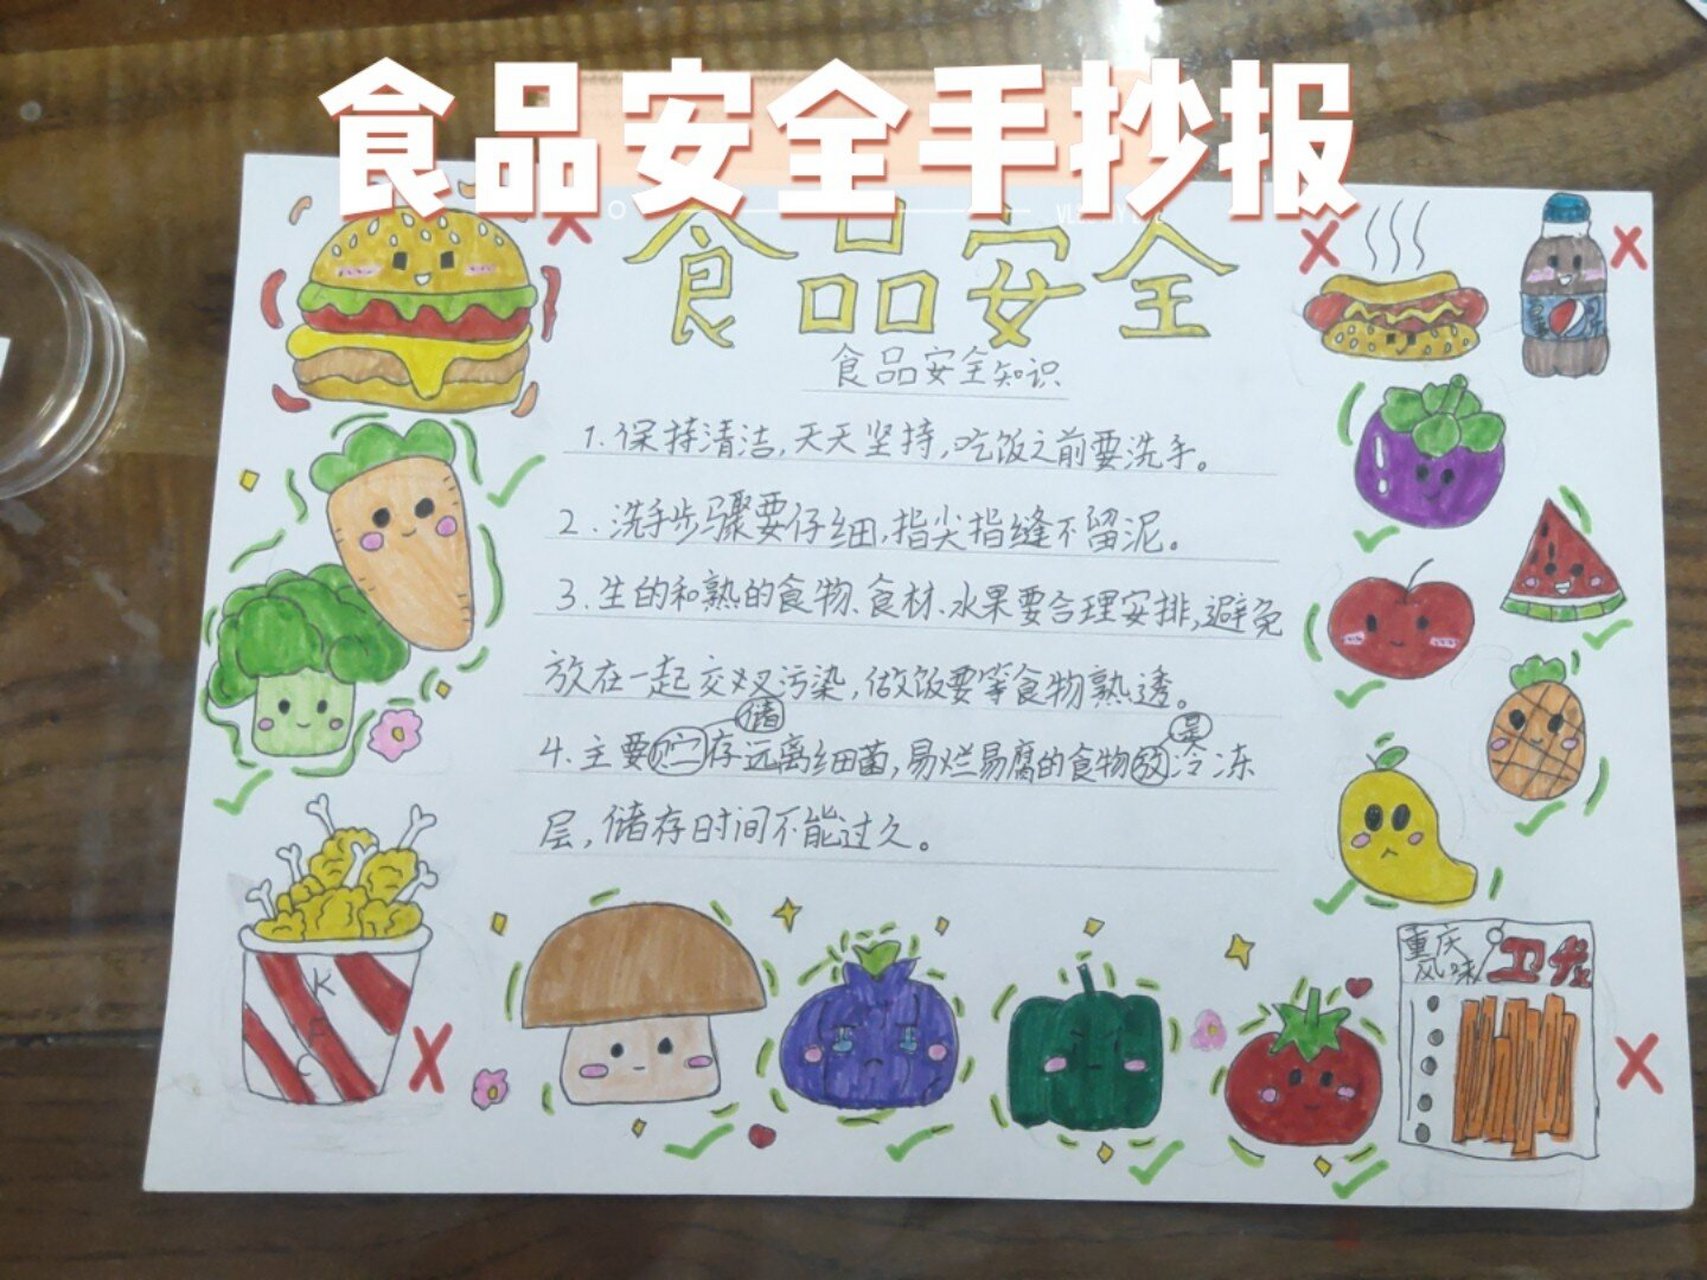 食品安全手抄报
食品安全
食品安全知识
1.保持清洁,天天坚持,吃饭之前要洗手。
2.洗手步骤要仔细,指尖指缝不留泥。
3.生的和熟的食物、食材、水果要合理安排,避免
放在一起交叉污染,做饭要等食物熟透。
储
4.主要贮存远离细菌,易烂易腐的食物放冷冻
层,储存时间不能过久。
KFC
重庆
风味
卫龙